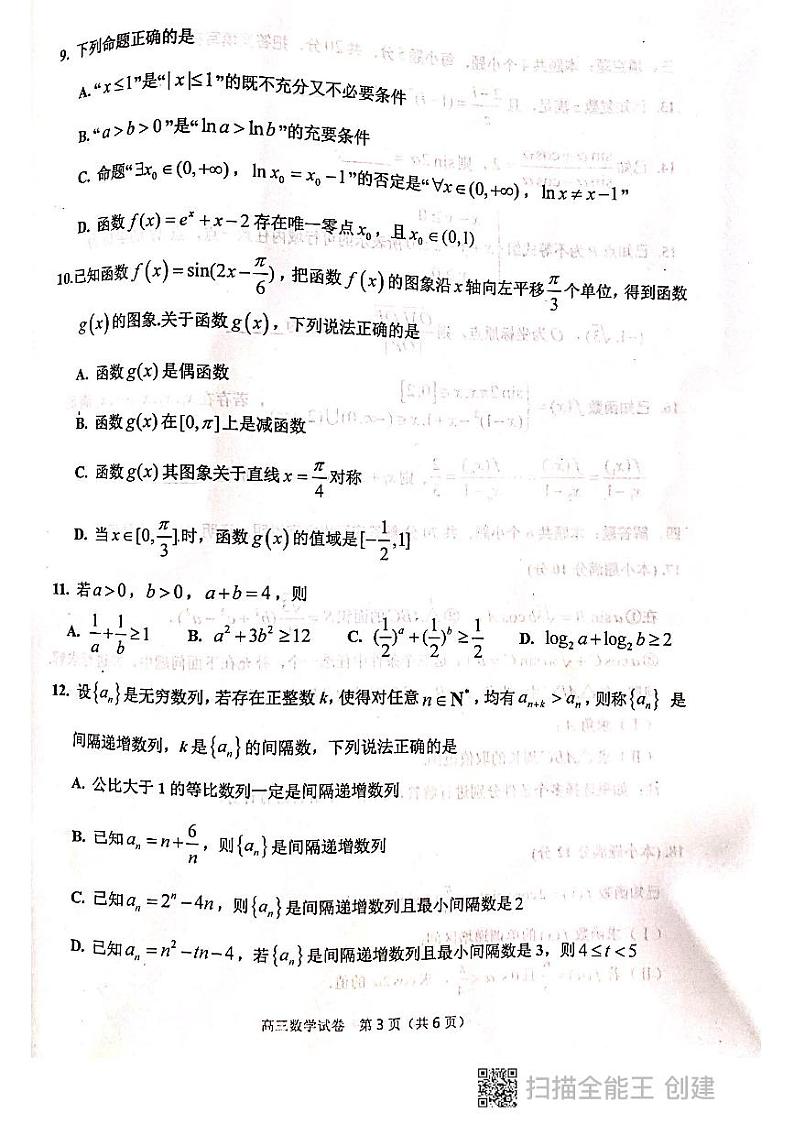 9. 下列命题正确的是
A.“x≤1”是“|x|≤1”的既不充分又不必要条件
B.“a>b>0”是“ln a>ln b”的充要条件
C. 命题“∃x₀∈(0,+∞)，ln x₀=x₀−1”的否定是“∀x∈(0,+∞)，ln x≠x−1”
D. 函数f(x)=eˣ+x−2存在唯一零点x₀，且x₀∈(0,1)
10.已知函数f(x)=sin(2x−π/6)，把函数f(x)的图象沿x轴向左平移π/3个单位，得到函数
g(x)的图象.关于函数g(x)，下列说法正确的是
A. 函数g(x)是偶函数
B. 函数g(x)在[0,π]上是减函数
C. 函数g(x)其图象关于直线x=π/4对称
D. 当x∈[0,π/3]时，函数g(x)的值域是[−1/2,1]
11. 若a>0，b>0，a+b=4，则
A. 1/a+1/b≥1 B. a²+3b²≥12 C. (1/2)ᵃ+(1/2)ᵇ≥1/2 D. log₂a+log₂b≥2
12. 设{aₙ}是无穷数列，若存在正整数k，使得对任意n∈N*，均有aₙ₊ₖ>aₙ，则称{aₙ} 是
间隔递增数列，k是{aₙ}的间隔数，下列说法正确的是
A. 公比大于1的等比数列一定是间隔递增数列
B. 已知aₙ=n+6/n，则{aₙ}是间隔递增数列
C. 已知aₙ=2ⁿ−4n，则{aₙ}是间隔递增数列且最小间隔数是2
D. 已知aₙ=n²−tn−4，若{aₙ}是间隔递增数列且最小间隔数是3，则4≤t<5
高三数学试卷 第3页（共6页）
扫描全能王 创建